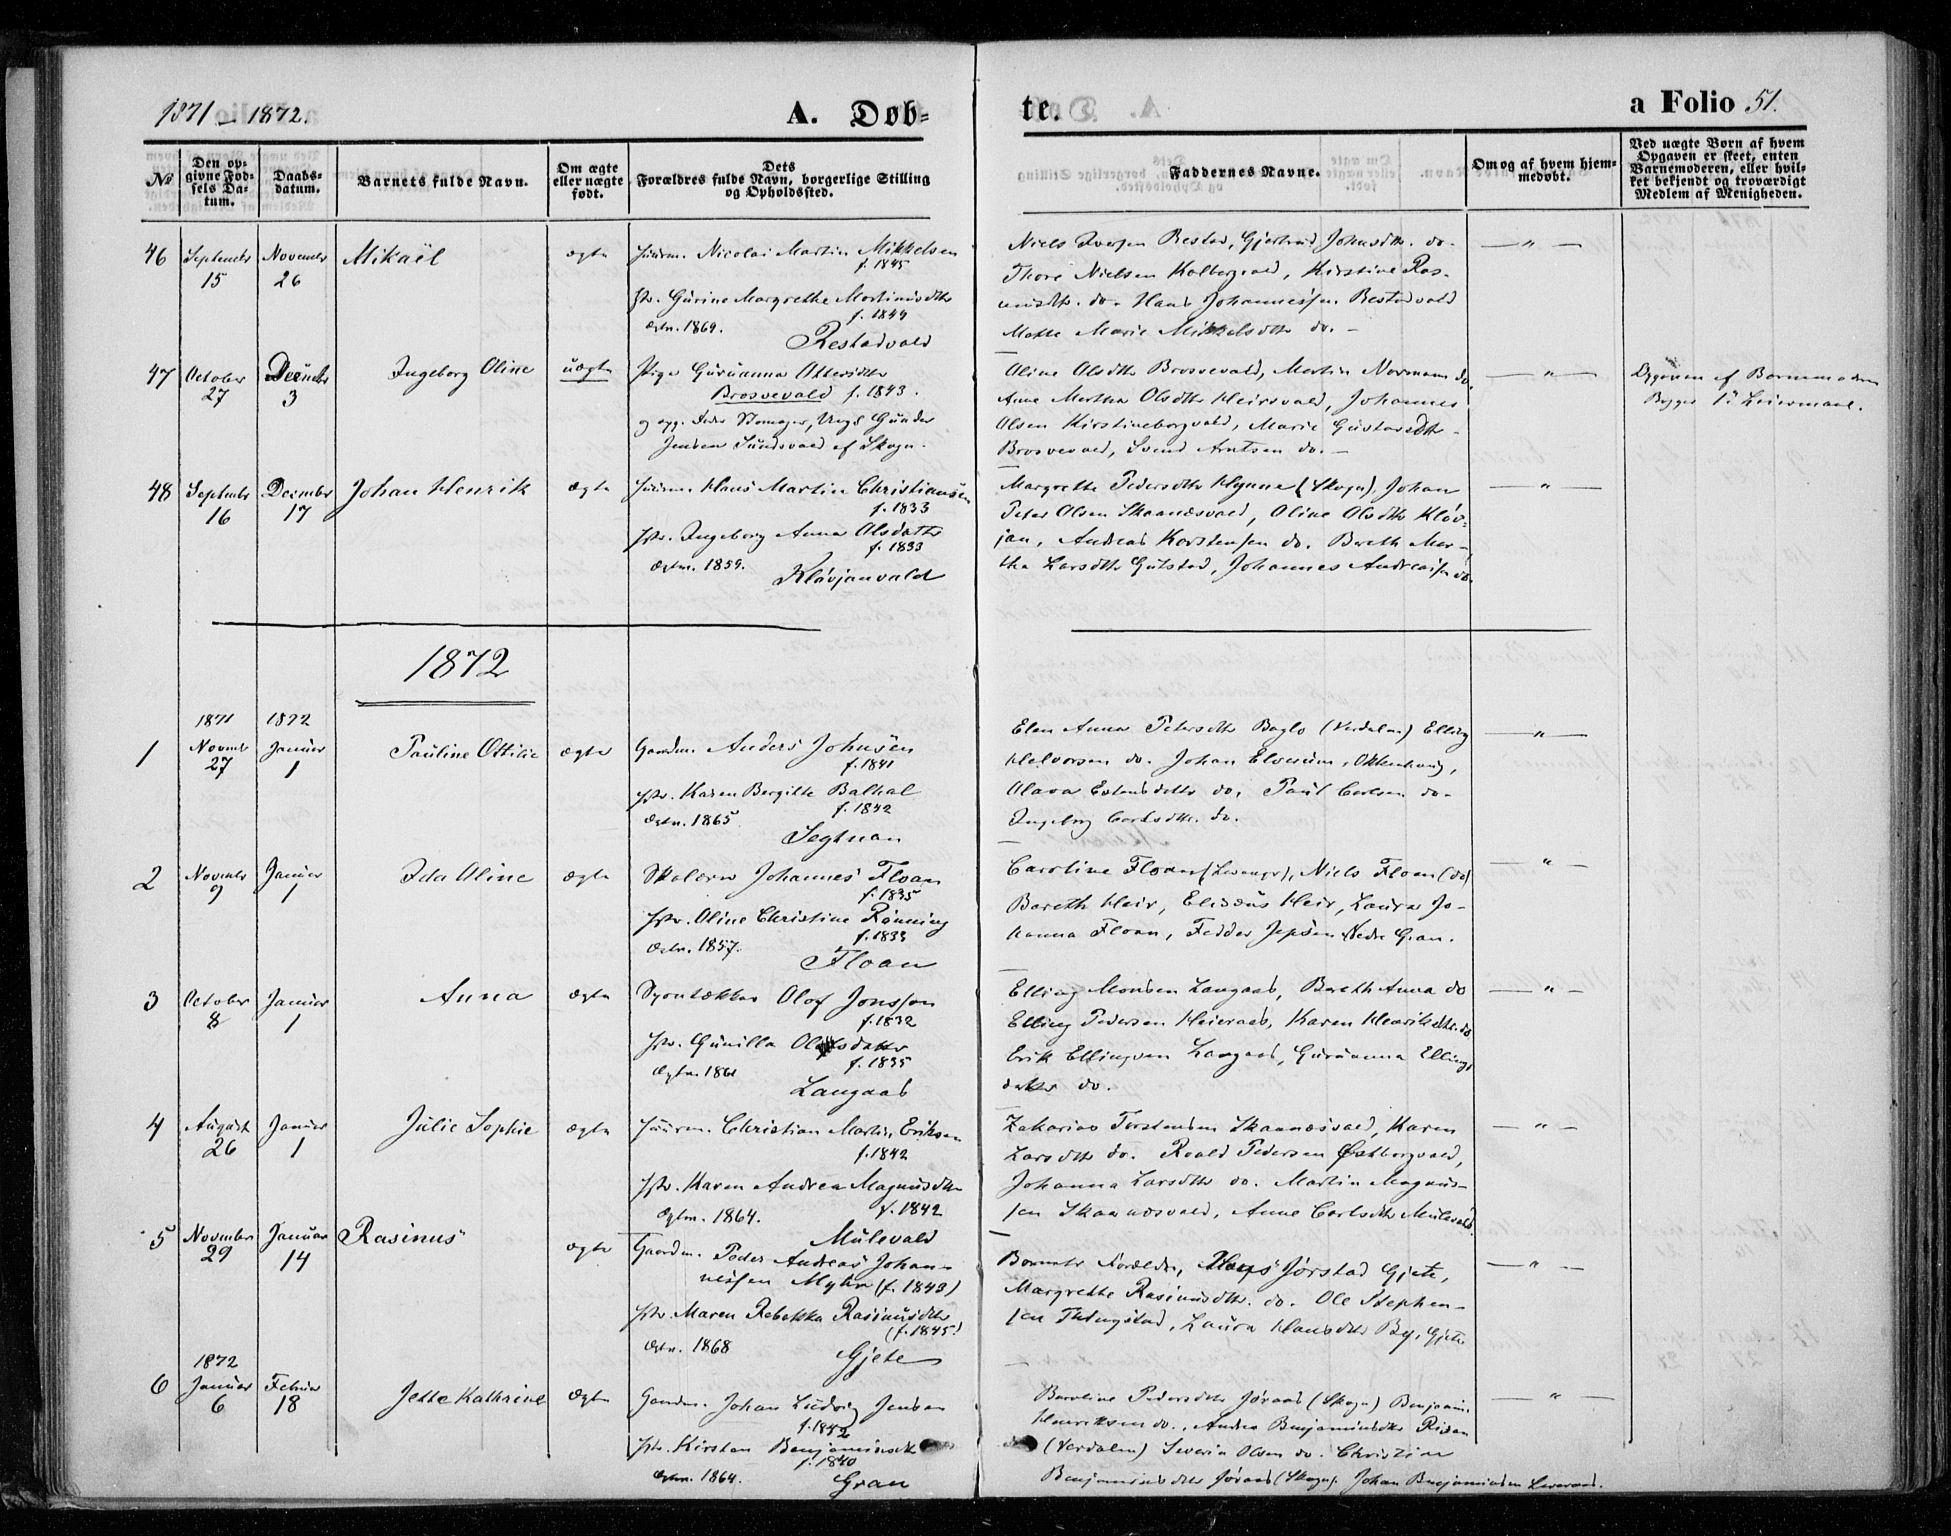 1871 - 1872.
A. Døb-
te.
a Folio 51.
No
Den op-
givne Fød-
sels Da-
tum.
Daabs-
datum.
Barnets fulde Navn.
Om ægte
eller uægte
født.
Dets
Forældres fulde Navn, borgerlige Stilling
og Opholdssted.
Faddernes Navne.
Om og af hvem hjem-
medøbt.
Ved uægte Børn af hvem
Opgaven er skeet, enten
Barnemoderen, eller hvil-
ket bekjendt og troværdigt
Medlem af Menigheden.
46 September 15 November 26 Mikaël ægte
Huusm. Nicolai Martin Mikkelsen
f. 1845
Hstr. Gurine Margrethe Martinusdtr
f. 1844
Ægtev. 1869.
Restadvald
Niels Iversen Restad, Gjertrud Johnsdtr. do.
Thore Nielsen Kolbergvald, Kirstine Ras-
musdtr. do. Hans Johannessen Restadvald
Mette Marie Mikkelsdtr do. -
— " —
47 October 27 December 3 Ingeborg Oline uægte
Pige Guruanna Ottersdtr
Brosvevald f. 1843.
og opg. Fader Gunder
Jensen Sundsvald af Skogn.
Oline Olsdtr Brosvevald, Martin Normann do.
Anne Martha Olsdtr Heirsvald, Johannes
Olsen Kirstineborgvald, Marie Gustavsdtr
Brosvevald, Svend Arntsen do. -
— " —
Opgaven af Barnemoderen
Begges 1ste Leiermaal.
48 September 16 December 17 Johan Henrik ægte
Huusm. Hans Martin Christiansen
f. 1833
Hstr. Ingeborg Anna Olsdatter
f. 1833
Ægtev. 1859.
Kløvjanvald
Margrethe Pedersdtr Hynne (Skogn), Johan
Peter Olsen Skaanæsvald, Oline Olsdtr Kløv-
jan, Andreas Karstensen do. Bereth Mar-
tha Larsdtr Gulstad, Johannes Andreassen do.
— " —
1872
1871 1872
1 Novembr 27 Januar 1 Pauline Ottilie ægte
Gaardm. Anders Johnsen
f. 1841
Hstr. Karen Bergitte Balhal
f. 1842
Ægtev. 1865
Segtnan
Elen Anna Petersdtr Baglo (Verdalen) Elling
Halvorsen do. Johan Elverum, Okkenhaug,
Olava Estensdatter do. Paul Carlsen do.
Ingeborg Carlsdtr. do.
— " —
2 November 9 Januar 1 Ida Oline ægte
Skolærer Johannes Floan
f. 1835
Hstr. Oline Christine Rønning
f. 1833
Ægtev. 1857.
Floan
Caroline Floan (Levanger), Niels Floan (do)
Bereth Heir, Elisæus Heir, Laura Jo-
hanna Floan, Fedder Jepsen Nedre Gran.
— " —
3 October 8 Januar 1 Anna ægte
Olof Jonsson
f. 1832
Hstr. Gunilla Olofsdatter
f. 1835
Ægtev. 1861
Langaas
Elling Monsen Langaas, Bereth Anna do
Elling Pedersen Heieraas, Karen Henriksdtr. do
Erik Ellingsen Langaas, Guruanna Ellings-
datter do.
— " —
4 August 26 Januar 1 Julie Sophie ægte
Huusm. Christian Martin Eriksen
f. 1842
Hstr. Karen Andrea Magnusdtr
f. 1842
Ægtev. 1864.
Mulevald
Zakarias Torstensen Skaanæsvald, Karen
Larsdtr do. Roald Pedersen Østborgvald,
Johanna Larsdtr do. Martin Magnus-
sen Skaanæsvald, Anne Carlsdtr Mulevald.
— " —
5 November 29 Januar 14 Rasinus ægte
Gaardm. Peder Andreas Johan-
nessen Myhr (f. 1843)
Hstr. Maren Rebekka Rasinusdtr
(f. 1845)
Ægtev. 1868
Gjete
Barnets Forældre, Hans Jørstad Gjete,
Margrethe Rasinusdtr. do. Ole Stephen-
sen Thingstad, Laura Hansdtr By, Gjete
— " —
1872
6 Januar 6 Februar 18 Jette Kathrine ægte
Gaardm. Johan Ludvig Jensen
f. 1842
Hstr. Kirsten Benjaminsdtr
f. 1840
Ægtev. 1864.
Gran
Baroline Pedersdtr Jøraas (Skogn) Benjamin
Henriksen do., Andrea Benjaminsdtr Risan
(Verdalen) Severin Olsen do. Christine
Benjaminsdtr Jøraas (Skogn). Johan Benjaminsen
— " —